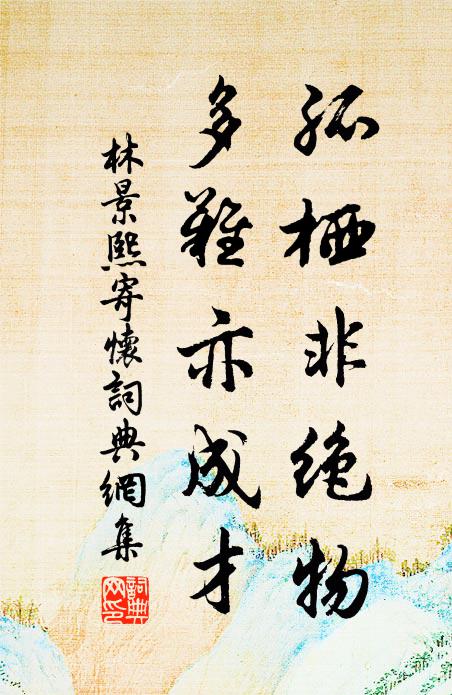 孤栖非絶物
多難亦成才
林景熙寄懷詞典網集
詞典網印